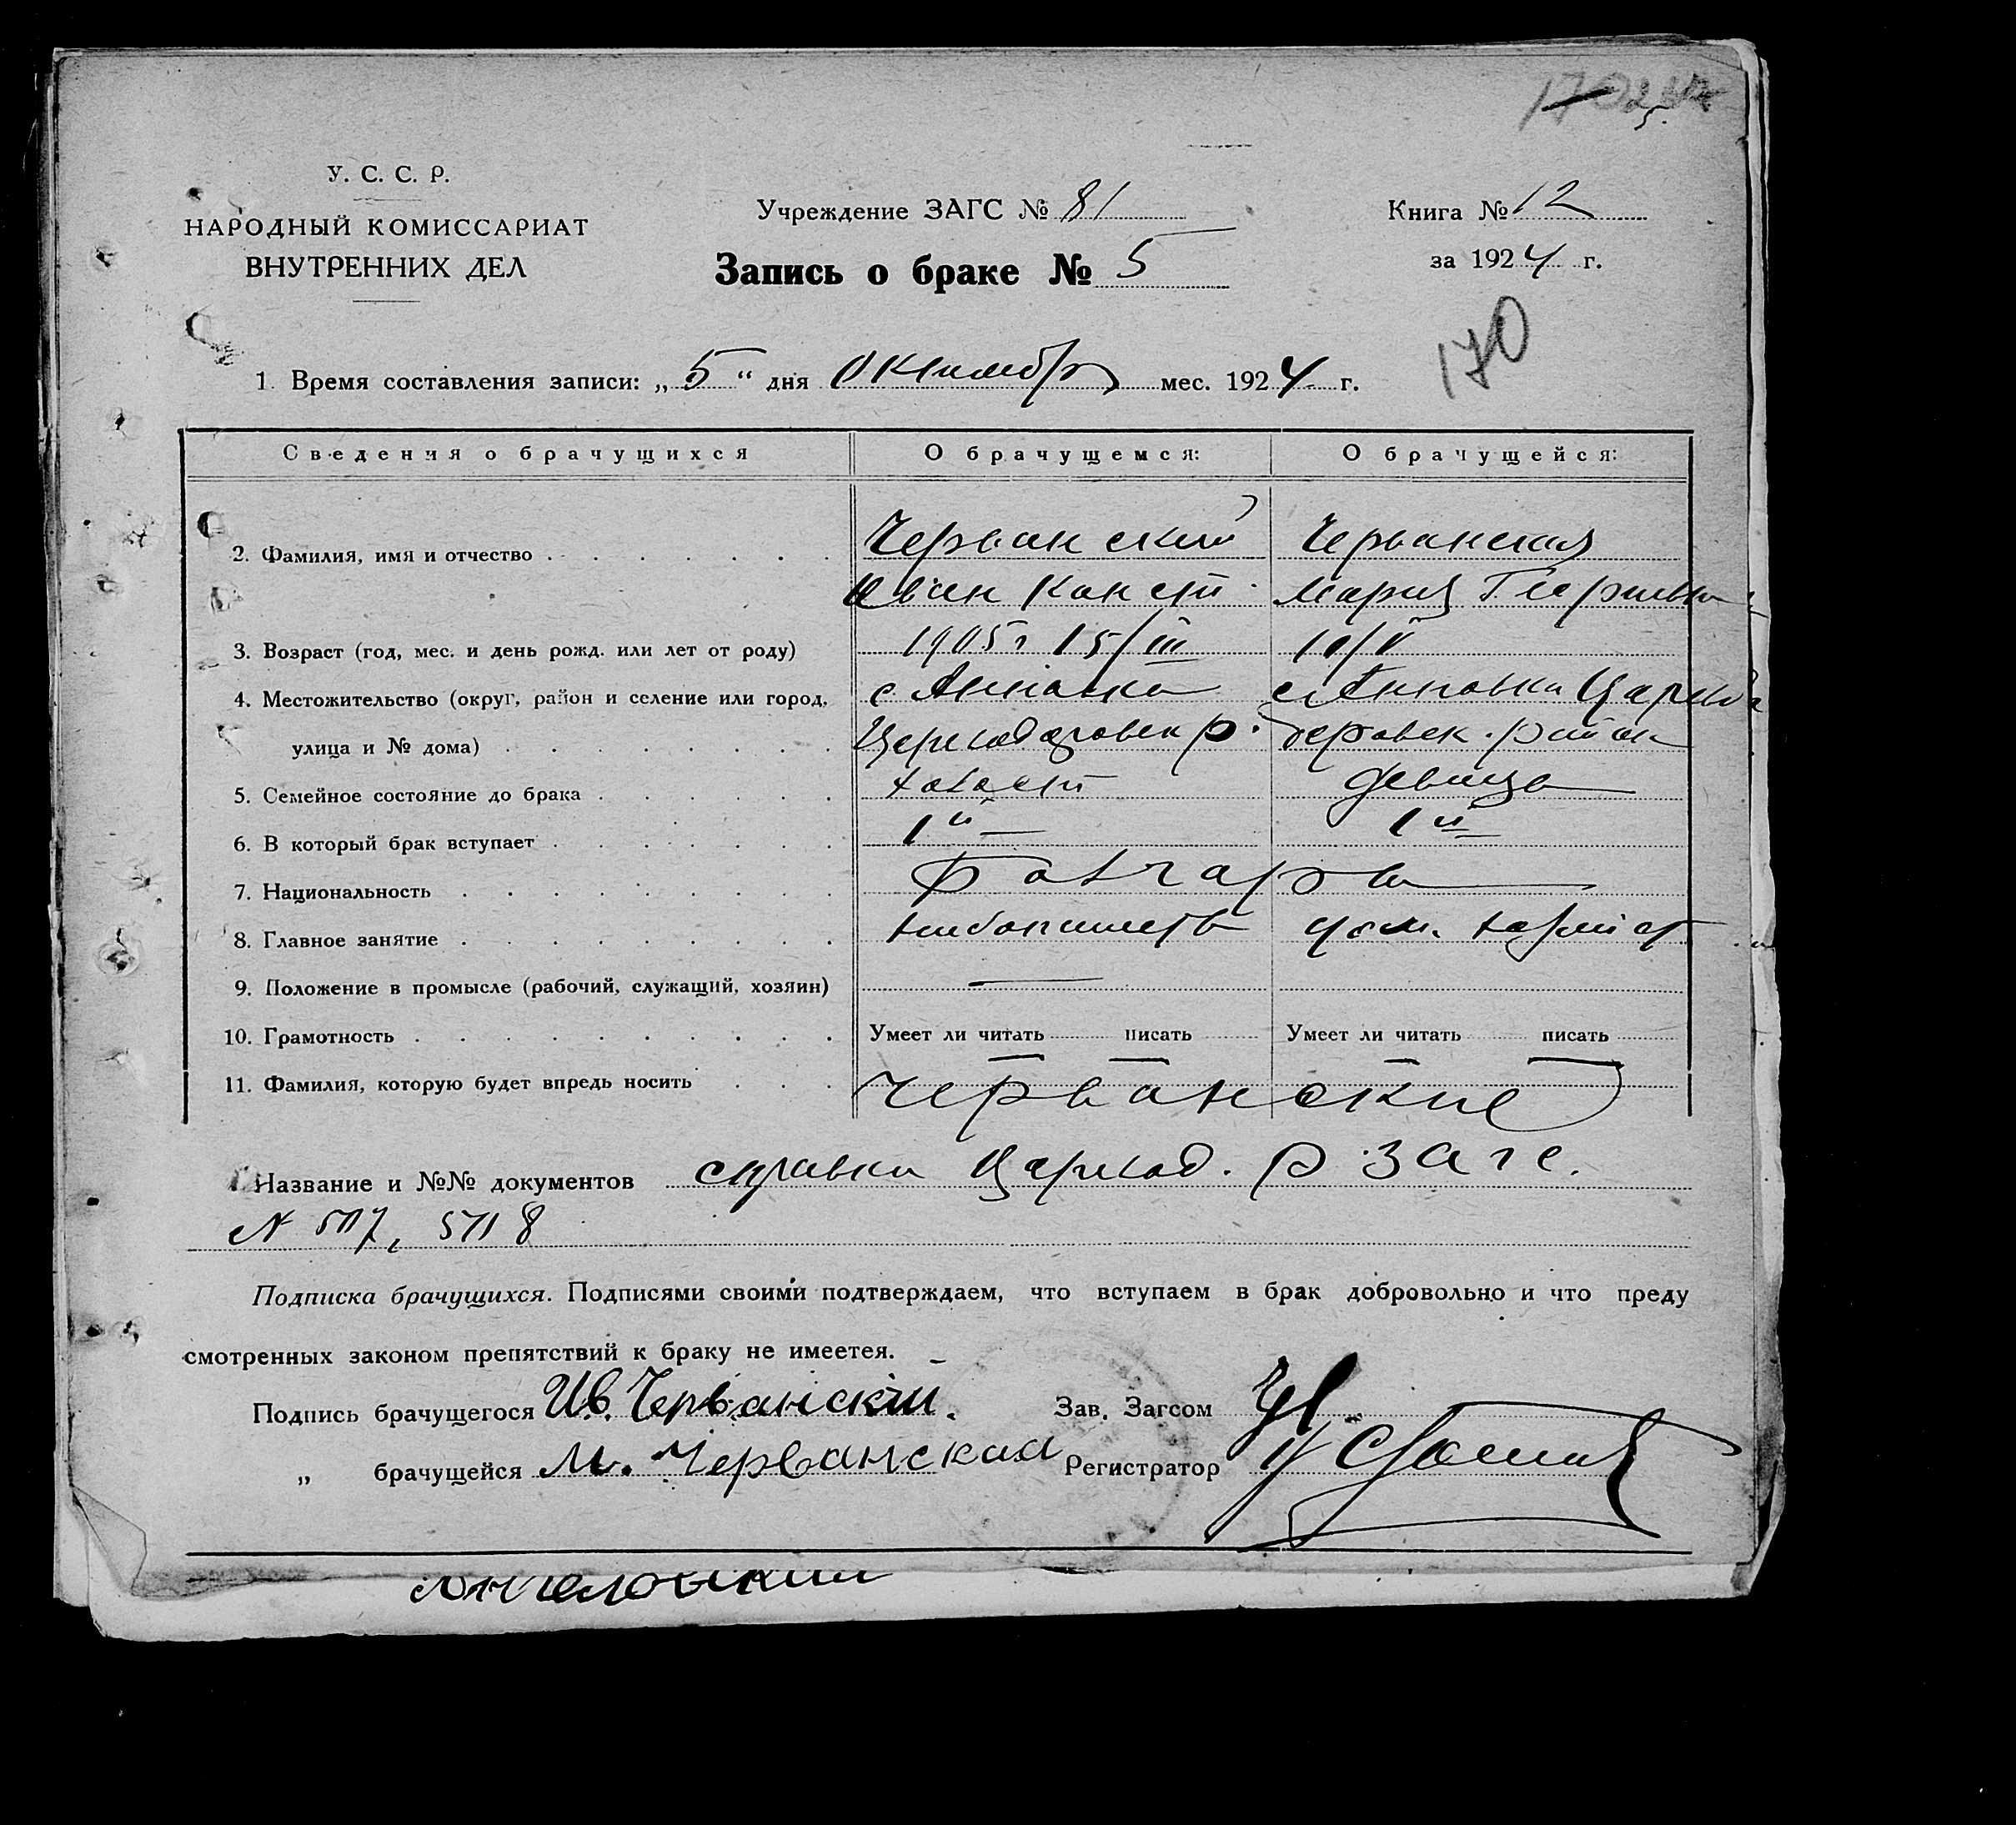 170
У. С. С. Р.
НАРОДНЫЙ КОМИССАРИАТ
ВНУТРЕННИХ ДЕЛ
Учреждение ЗАГС № 81
Книга № 12
Запись о браке № 5
за 1924 г.
170
1. Время составления записи: „ 5 “ дня Октября мес. 1924 г.
Сведения о брачущихся О брачущемся: О брачущейся:
2. Фамилия, имя и отчество Черванский Черванская
Иван Конст. Мария Георгиевна
3. Возраст (год, мес. и день рожд. или лет от роду) 1905 г 15/III 10/V
4. Местожительство (округ, район и селение или город, с Анновка с Анновка Цареда
улица и № дома) р. район
5. Семейное состояние до брака холост девица
6. В который брак вступает 1й 1й
7. Национальность Болгары
8. Главное занятие хлебопашеств дом. хозяйст
9. Положение в промысле (рабочий, служащий, хозяин) —
10. Грамотность Умеет ли читать писать Умеет ли читать писать
11. Фамилия, которую будет впредь носить Черванские
Название и №№ документов справки Царевод. Р. Загс.
N 517, 518
Подписка брачущихся. Подписями своими подтверждаем, что вступаем в брак добровольно и что преду
смотренных законом препятствий к браку не имеется.
Подпись брачущегося Ив. Червански. Зав. Загсом
„ брачущейся М. Черванская Регистратор